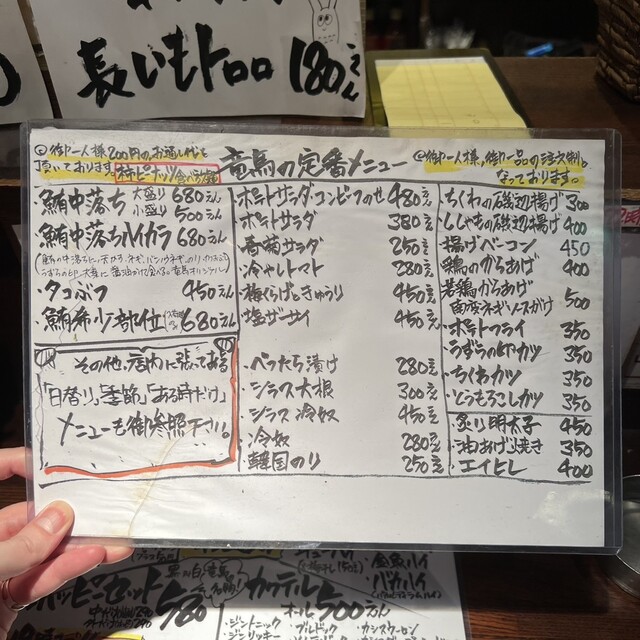 長いもトロロ 180えん
御一人様200円のお通し代を
頂いております。柿ピーナッツ食べ放題
竜馬の定番メニュー
御一人様、御一品の注文制と
なっております。
・鮪中落ち 大盛り 680えん
小盛り 500えん
・鮪中落ちハイカラ 680えん
・タコぶつ 450えん
・鮪希少部位 680えん
その他、店内に張ってある
「日替り」「季節」「ある時だけ」
メニューも御参照下さい。
・ポテトサラダコンビーフのせ 480えん
・ポテトサラダ 380えん
・春菊サラダ 250えん
・冷やしトマト 280えん
・梅くらげときゅうり 450えん
・塩ザーサイ 450えん
・べったら漬け 280えん
・シラス大根 300えん
・シラス冷奴 450えん
・冷奴 280えん
・韓国のり 250えん
・ちくわの磯辺揚げ 300
・ししゃもの磯辺揚げ 400
・揚げベーコン 450
・鶏のからあげ 400
・若鶏からあげ
南蛮ネギソースがけ 500
・ポテトフライ 350
・うずらの卵カツ 350
・ちくわカツ 350
・とうもろこしカツ 350
・炙り明太子 450
・油あげ焼き 350
・エイヒレ 400
ホッピーセット 580
カクテル
オール500えん
・ジントニック
・ブルドック
・カシスウーロン
・金魚ハイ
・バカハイ